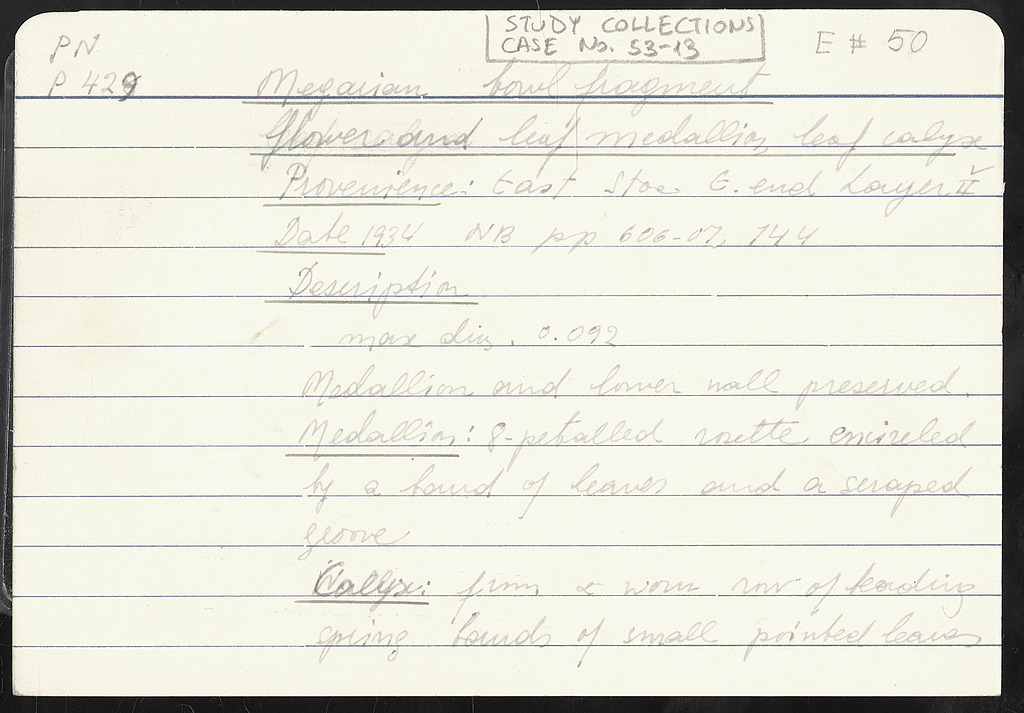 STUDY COLLECTIONS
CASE No. 53-13
E # 50
PN
P 429
Megarian bowl fragment
flower and leaf medallion, leaf calyx
Provenience: East Stoa. E. end Layer II
Date 1934 NB pp 606-07, 744
Description
max dim. 0.092
Medallion and lower wall preserved.
Medallion: 8-petalled rosette encircled
by a band of leaves and a scraped
groove
Calyx: from a worn row of beading
spring bands of small pointed leaves